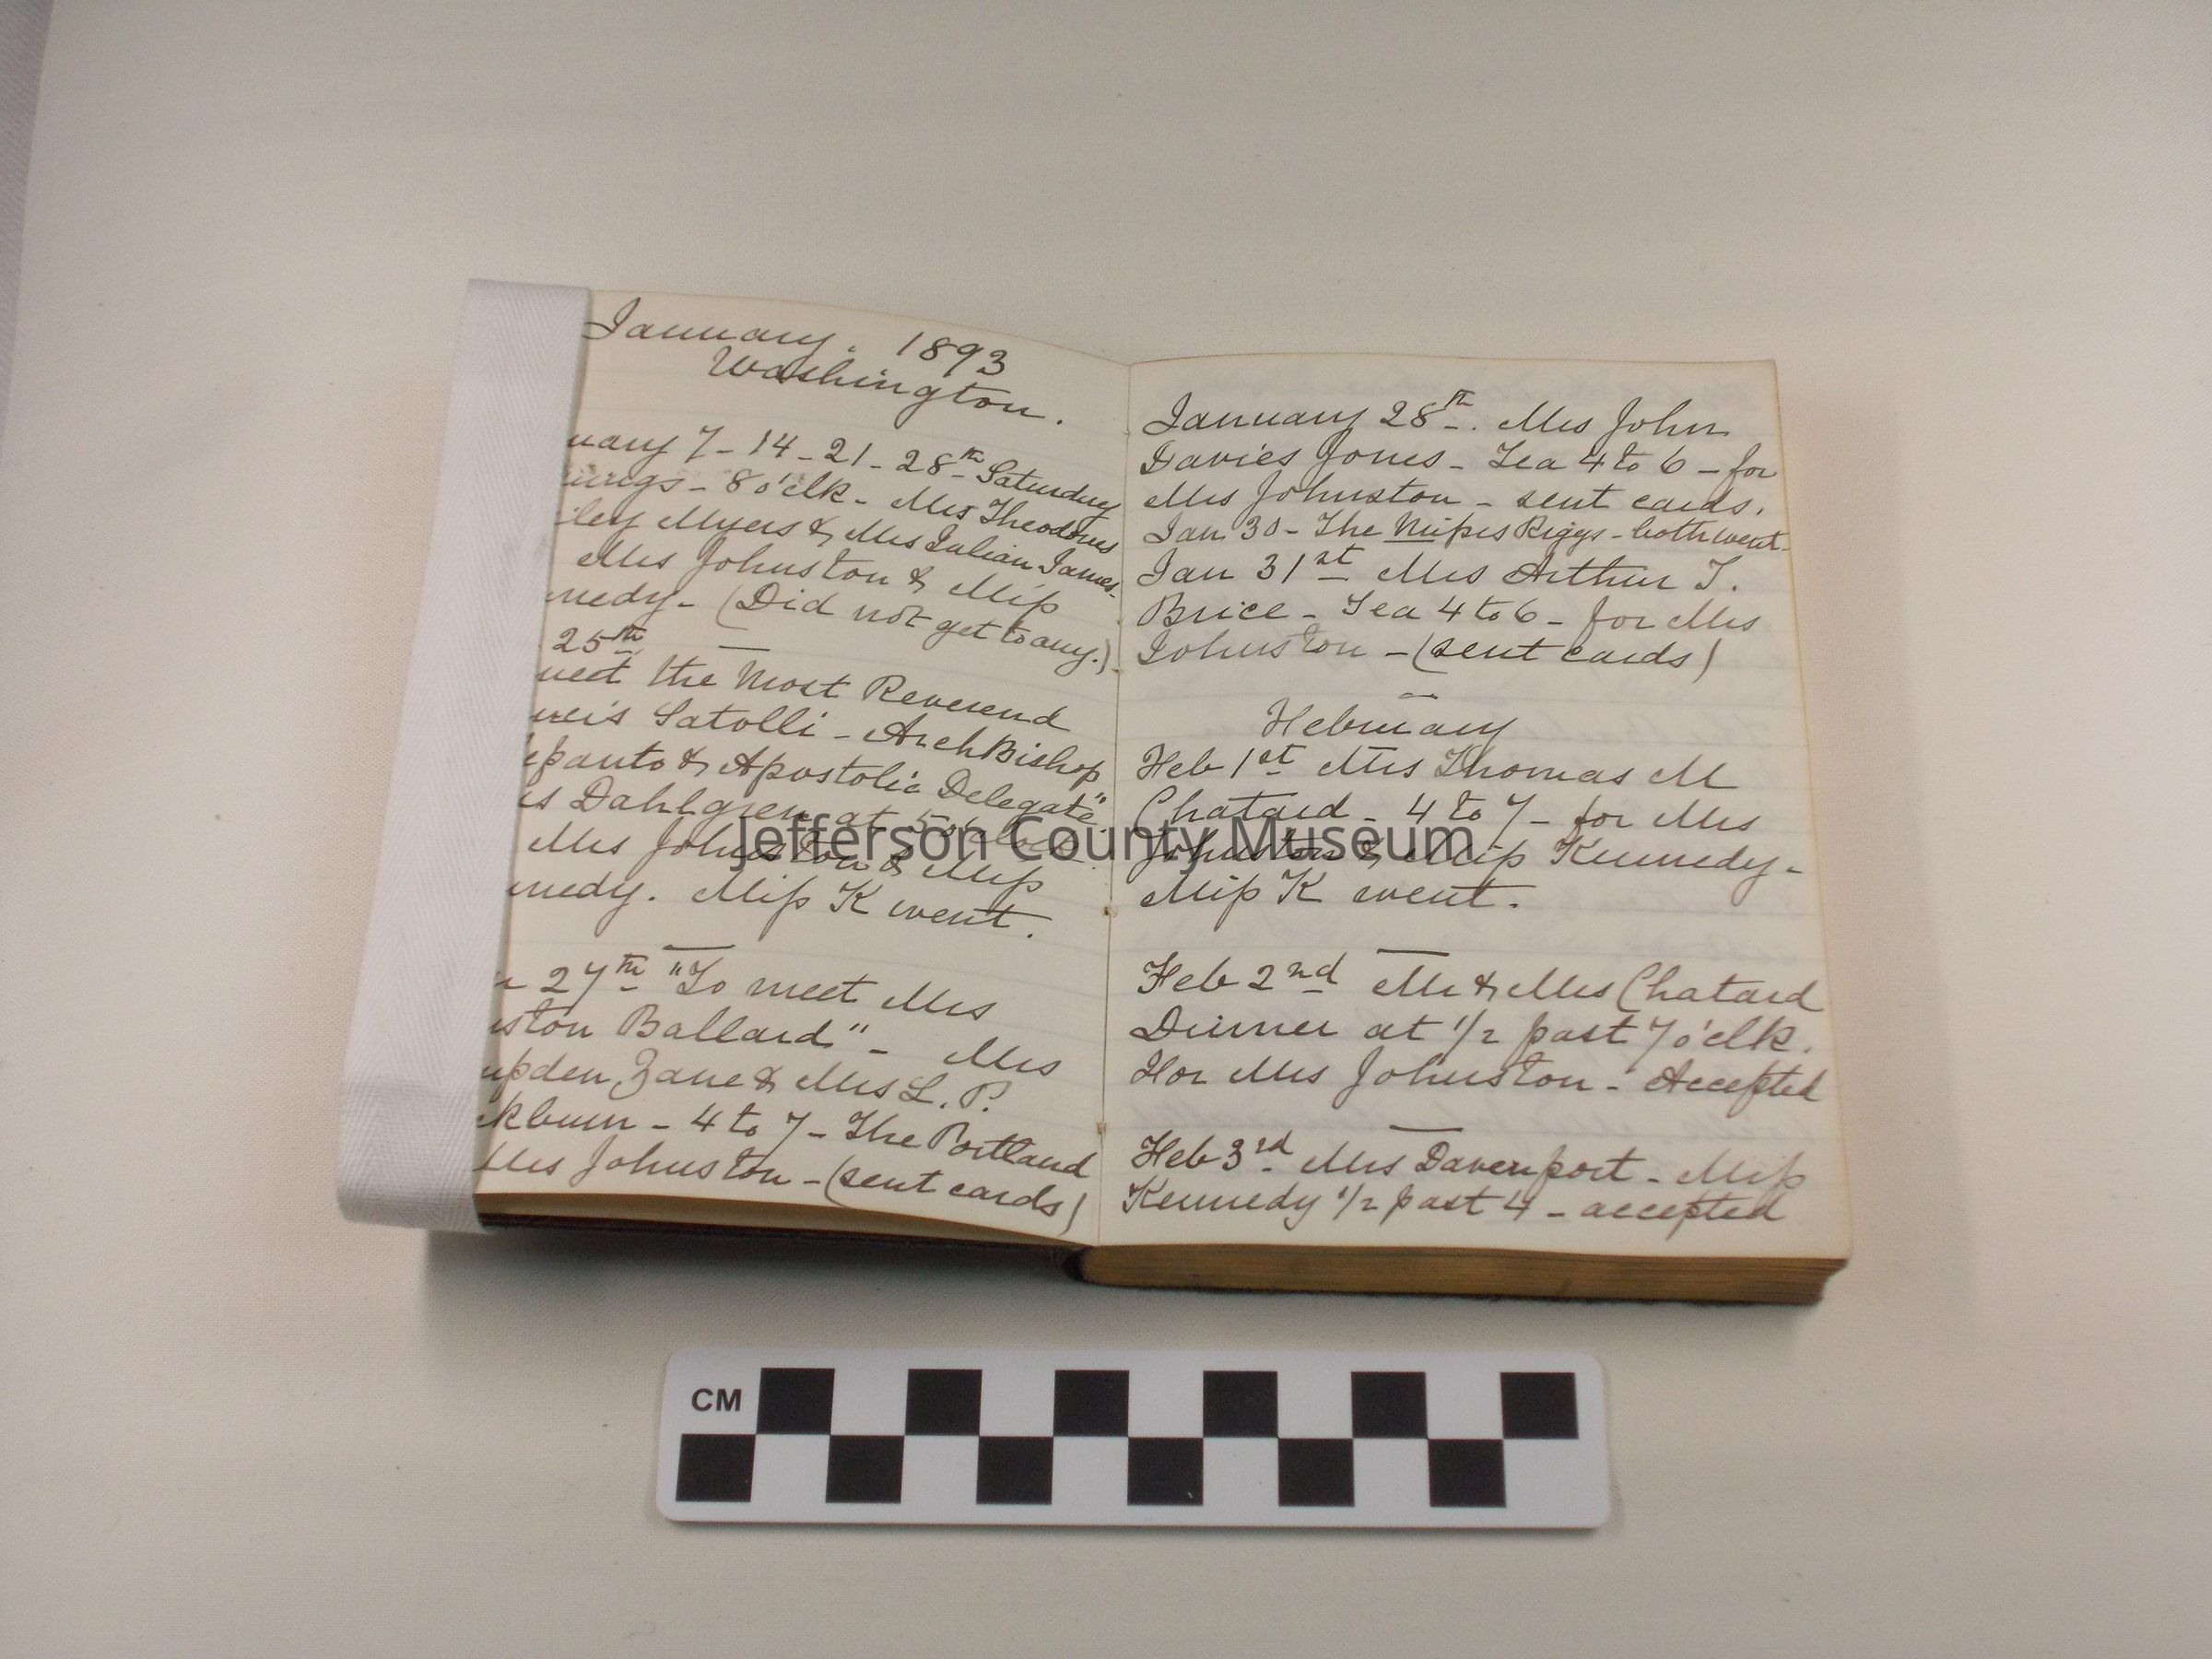 January. 1893
Washington.
uary 7 - 14 - 21 - 28th - Saturday
- 8 o'clk - Mrs Theodorus
ley Myers & Mrs Julian James.
Mrs Johnston & Miss
nedy - (Did not get to any.)
25th
meet the Most Reverend
Satolli - ArchBishop
epanto & Apostolic Delegate"
rs Dahlgren at 5 o'clock
Mrs Johnston & Miss
nnedy. Miss K went.
27th "To meet Mrs
ston Ballard" - Mrs
mpden Zane & Mrs L. P.
ckburn - 4 to 7 - The Portland
Mrs Johnston - (sent cards)
January 28th. Mrs John
Davies Jones - Tea 4 to 6 - for
Mrs Johnston - sent cards.
Jan 30 - The Misses Riggs - both went -
Jan 31st Mrs Arthur T.
Brice - Tea 4 to 6 - for Mrs
Johnston - (sent cards)
February
Feb 1st Mrs Thomas M
Chatard - 4 to 7 - for Mrs
Johnston & Miss Kennedy -
Miss K went.
Feb 2nd Mr & Mrs Chatard
Dinner at 1/2 past 7 o'clk.
For Mrs Johnston - Accepted
Feb 3rd Mrs Davenport - Miss
Kennedy 1/2 past 4 - accepted
Jefferson County Museum
CM